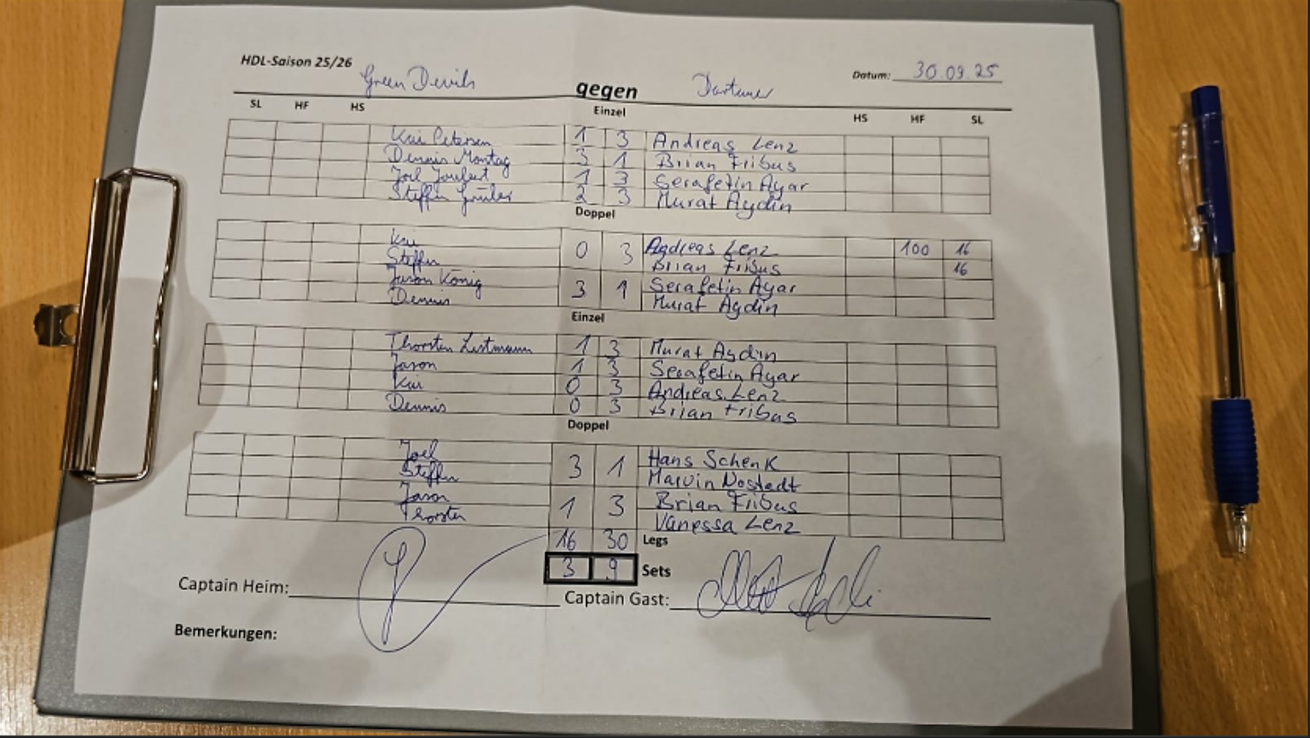 HDL-Saison 25/26
Green Devils gegen Dartuner Datum: 30.09.25
SL HF HS Einzel HS HF SL
Kai Petersen 1 3 Andreas Lenz
Dennis Montag 3 1 Brian Fribus
Joel Joubert 1 3 Serafetin Ayar
Steffen 2 3 Murat Aydin
Doppel
Kai 0 3 Andreas Lenz 100 16
Steffen Brian Fribus 16
Jason König 3 1 Serafetin Ayar
Dennis Murat Aydin
Einzel
Thorsten 1 3 Murat Aydin
Jason 1 3 Serafetin Ayar
Kai 0 3 Andreas Lenz
Dennis 0 3 Brian Fribus
Doppel
Joel 3 1 Hans Schenk
Steffen Marvin Nostedt
Jason 1 3 Brian Fribus
Thorsten Vanessa Lenz
16 30 Legs
3 9 Sets
Captain Heim: Captain Gast:
Bemerkungen: